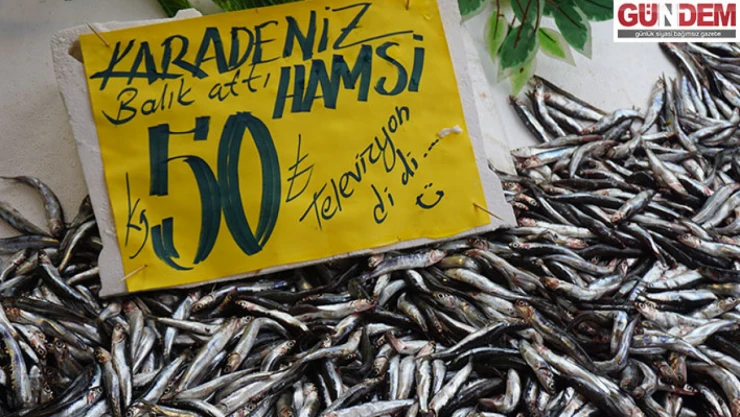 GÜNDEM
günlük siyasi bağımsız gazete
KARADENİZ
Balık attı HAMSİ
kg 50 ₺
Televizyon
di di....